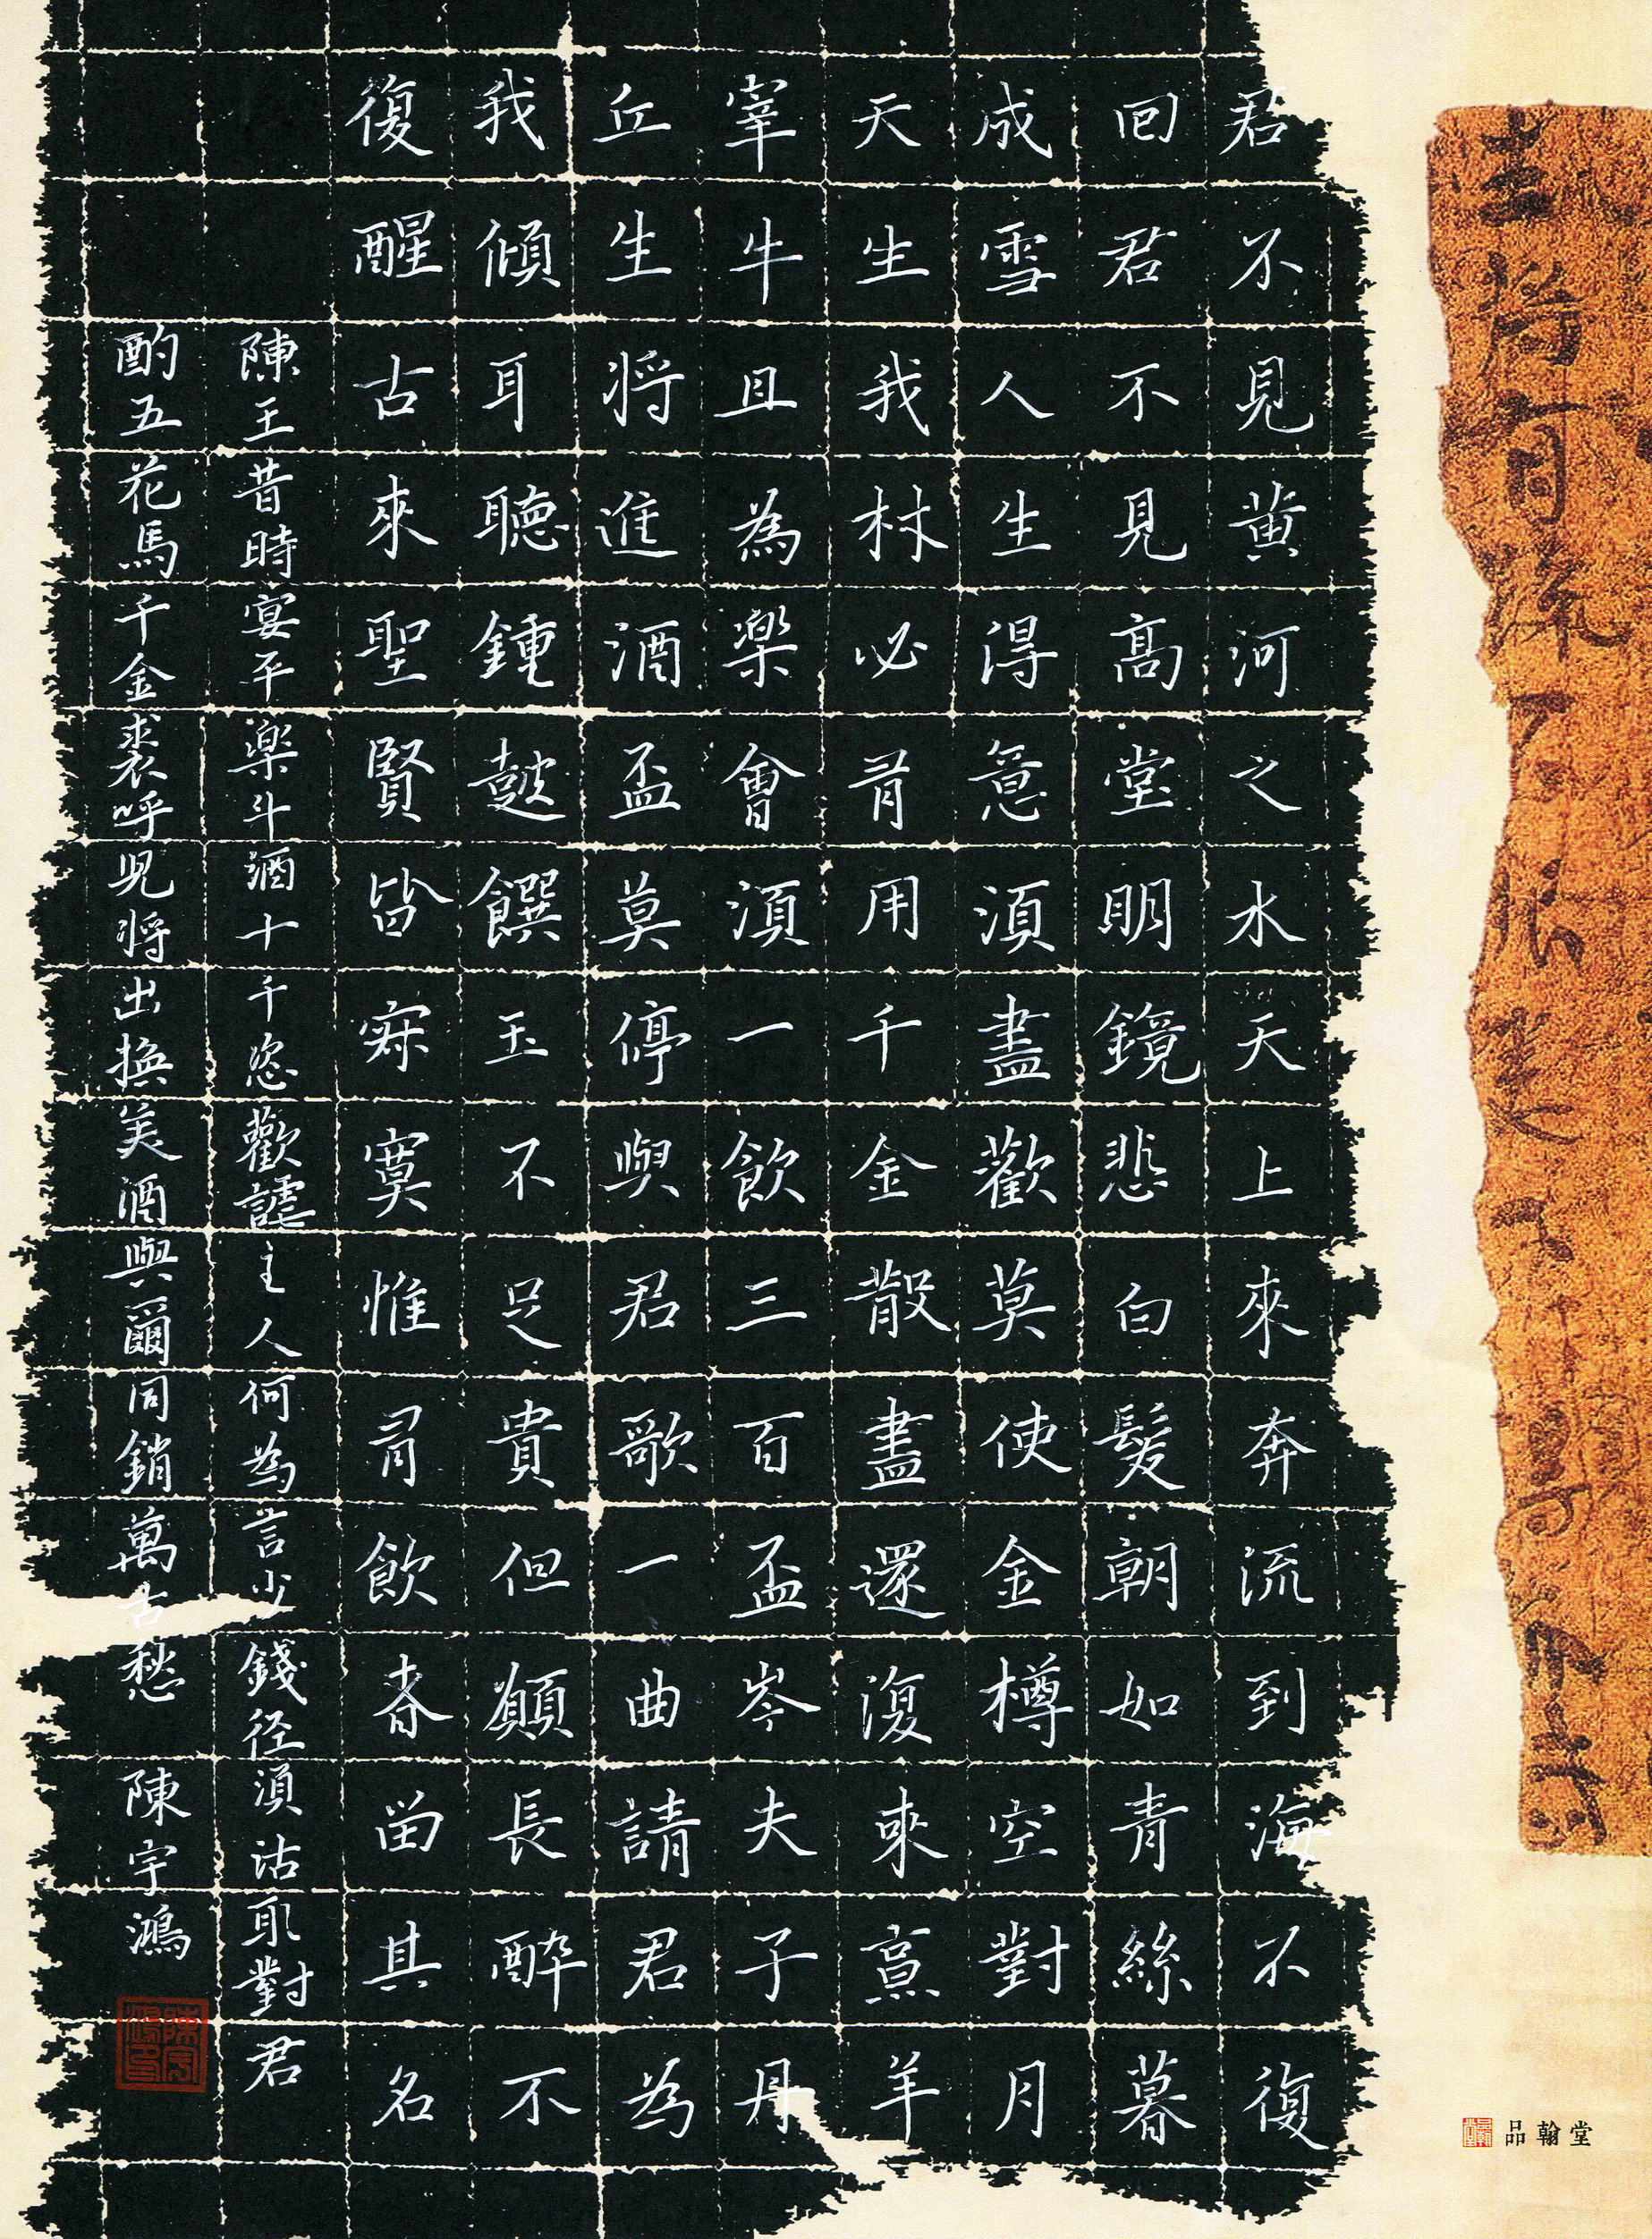 君不見黃河之水天上來奔流到海不復
回君不見高堂明鏡悲白髮朝如青絲暮
成雪人生得意須盡歡莫使金樽空對月
天生我材必有用千金散盡還復來烹羊
宰牛且為樂會須一飲三百盃岑夫子丹
丘生將進酒盃莫停與君歌一曲請君為
我傾耳聽鍾鼓饌玉不足貴但願長醉不
復醒古來聖賢皆寂寞惟有飲者留其名
陳王昔時宴平樂斗酒十千恣歡謔主人何為言少錢径須沽取對君
酌五花馬千金裘呼兒將出換美酒與爾同銷萬古愁 陳宇鴻
陳宇鴻印
品翰堂